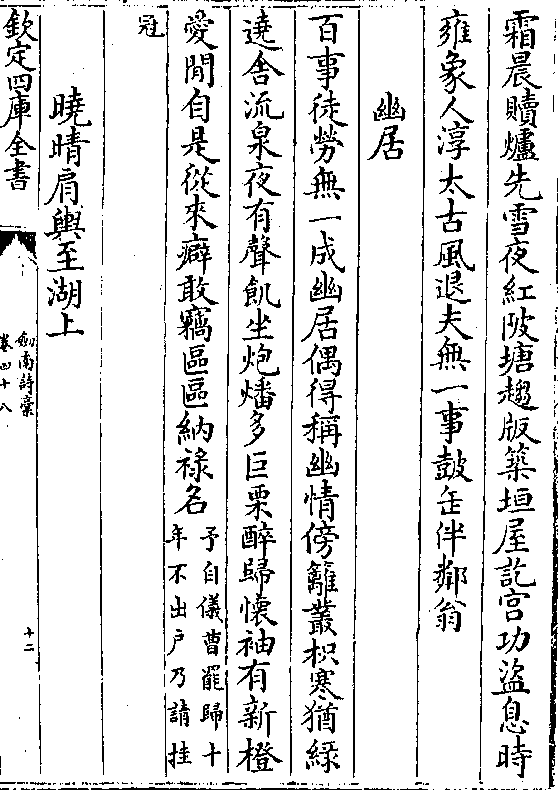 霜晨贖爐先雪夜紅陂塘趨版築垣屋訖宫功盜息時
雍象人淳太古風退夫無一事鼓缶伴鄰翁
幽居
百事徒勞無一成幽居偶得稱幽情傍籬叢枳寒猶綠
遶舍流泉夜有聲飢坐炮燔多巨栗醉歸懷袖有新橙
愛閒自是從來癖敢竊區區納祿名
予自儀曹罷歸十
年不出户乃請挂
冠
曉晴肩輿至湖上
欽定四庫全書
劍南詩稾
卷四十八
十二